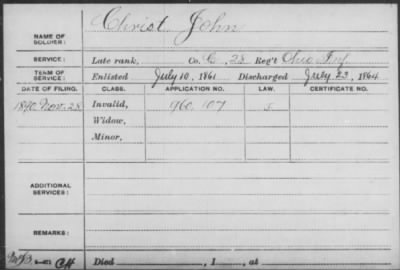 Christ John
NAME OF
SOLDIER:
SERVICE: Late rank, Co. C, 28 Reg't Ohio Inf
TERM OF
SERVICE: Enlisted July 10, 1861 Discharged July 23, 1864
DATE OF FILING. CLASS. APPLICATION NO. LAW. CERTIFICATE NO.
1890 Nov. 28 Invalid, 960.107
Widow,
Minor,
ADDITIONAL
SERVICES:
REMARKS:
Died , 1 , at